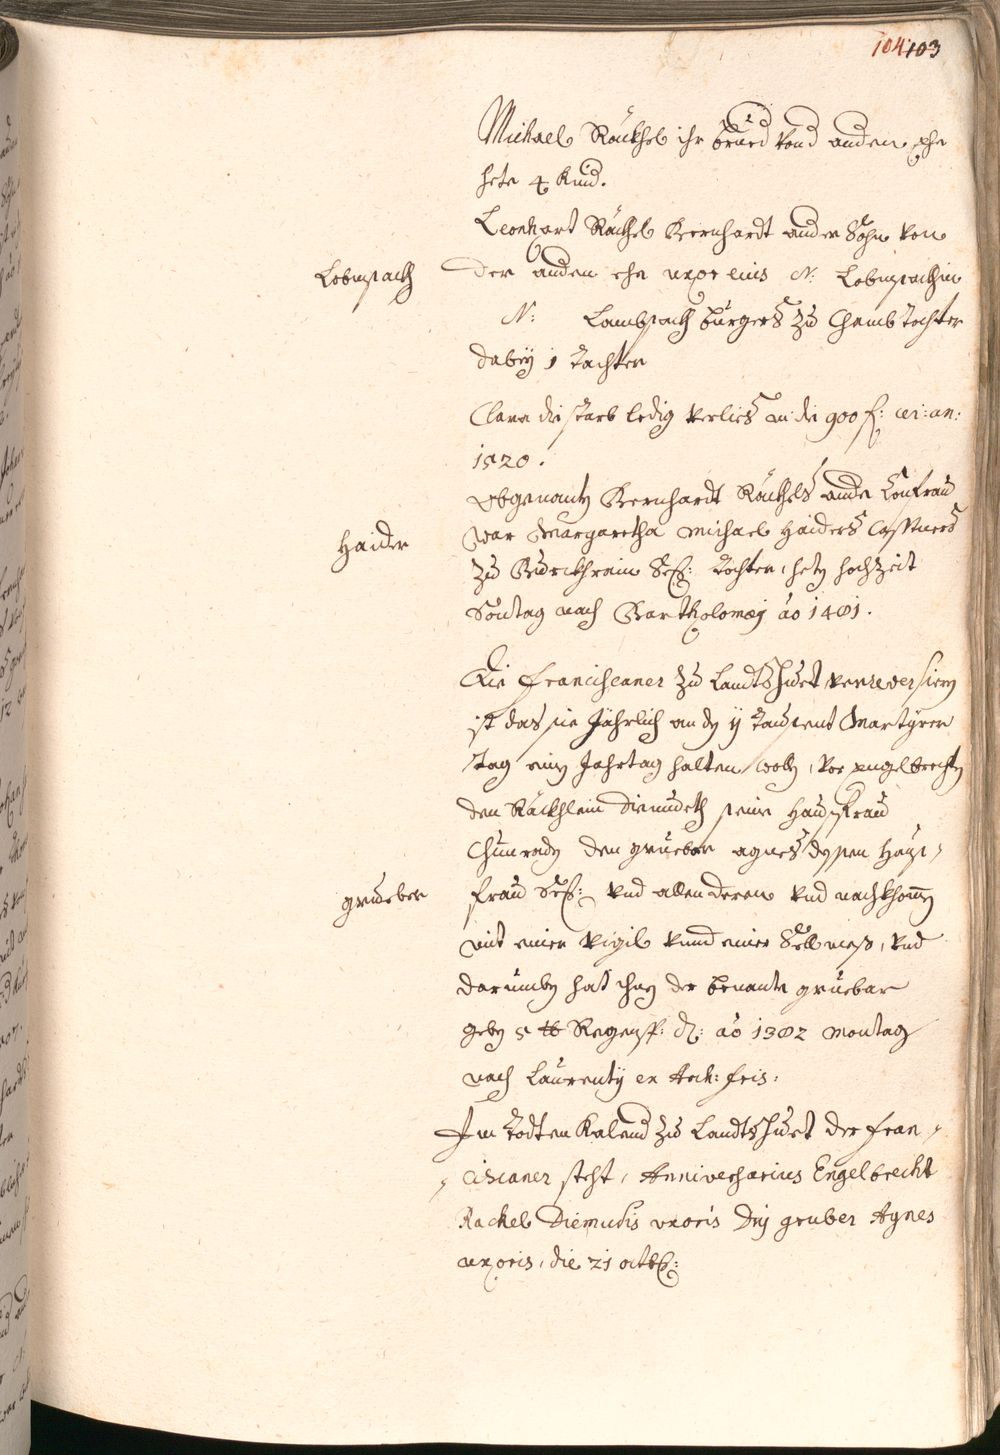 104 103
Michael Räckhel ihr Brued vond anden ehe
hete 4 Kind.
Leonhart Räckhel Bernhardt ander Sohn von
Lobmpach
der anden ehe uxor eius N: Lobmpachin
N: Lambpach burgers zu Chamb Tochter
dabeÿ 1 Tachter
Clara die starb ledig verlies die 900 f:
1520.
Obgenants Bernhardt Räckhels ande Haußfrau
Haider
war Margaretha Michael Haiders Casstners
zu Sel: Tochter, hety hochzeit
Sontag nach Bartholomæj ao 1481.
Die Franciscaner zu Landtshuet
ist das sie Jährlich an dy ij Tausent Martÿrer
Tag eing Jahrtag halten wolln, vor engelbrechtn
den Räckhlein diemudeth seine Haußfrau
Chunradn den gruebar agnes dessen Hauß-
grueber
frau Sel: vnd allen deren vnd nachkhomen
mit einer vigil vnnd einer Sellmeß, vnd
darumben hat ihnen der benante gruebar
gebn 5 ℔ Regensp: d: ao 1382 Montag
nach Laurentÿ ex Arch: fris:
Im Todten Kalend zu Landtshuet der Fran-
ciscaner steht, Anniversarius Engelbrecht
Rackel Diemudis vxoris gruber Agnes
uxoris, die 21 octob: